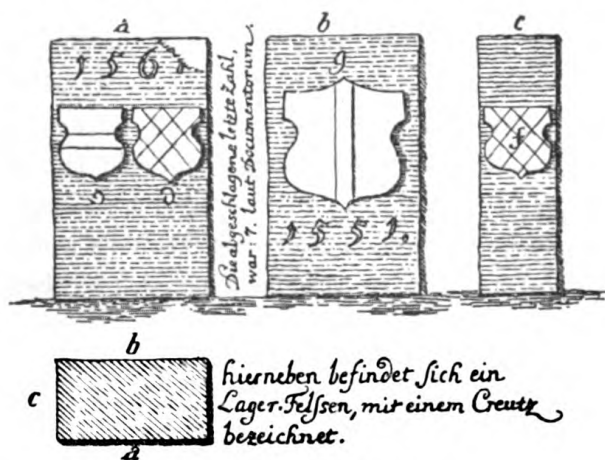 a
156
Die abgeschlagene letzte Zahl,
war: 7. laut Documentorum.
b
g
1551.
c
f
b
c
a
hierneben befindet sich ein
Lager-Felssen, mit einem Creutz
bezeichnet.